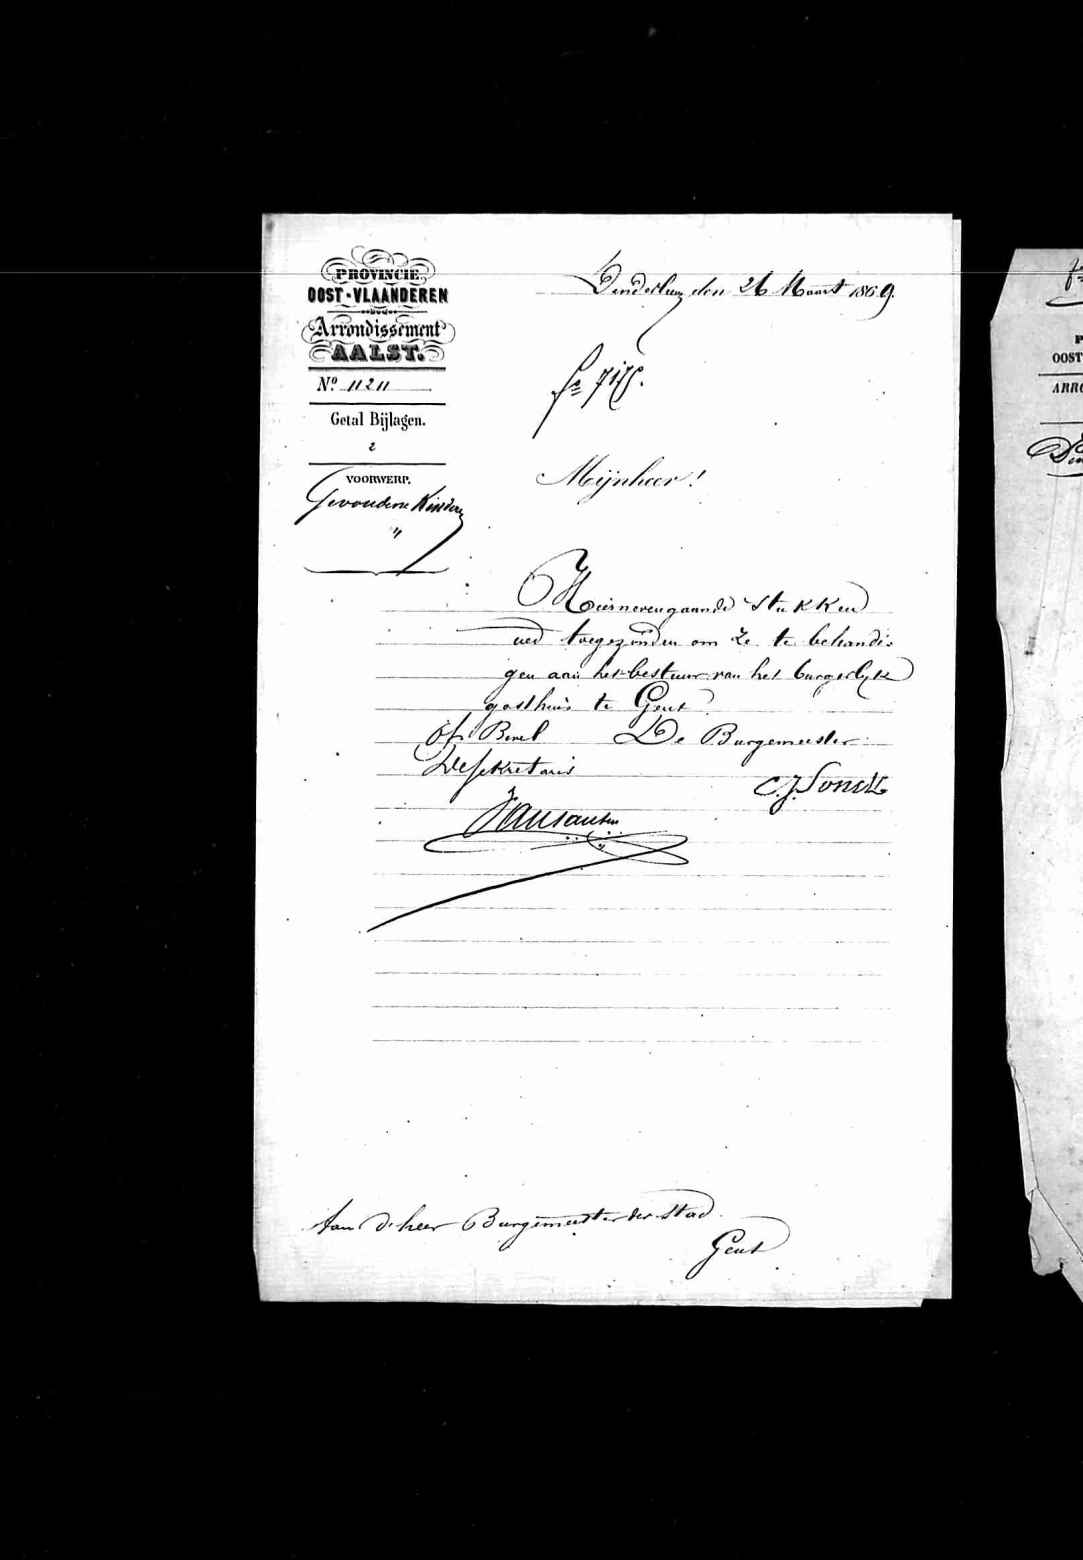 PROVINCIE
OOST-VLAANDEREN
Arrondissement
AALST.
Nº 11211
Getal Bijlagen.
2
VOORWERP.
Gevondene Kinderen
"
den 26 Maart 1869.
Mijnheer!
Hiernevengaande stukken
ued toegezonden om ze te behandi-
gen aan het bestuur van het burgerlyk
gasthuis te Gent
Op Bevel De Burgemeester
De Sekretaris
C. J. Sonck
Aan de heer Burgemeester der Stad
Gent
OOST